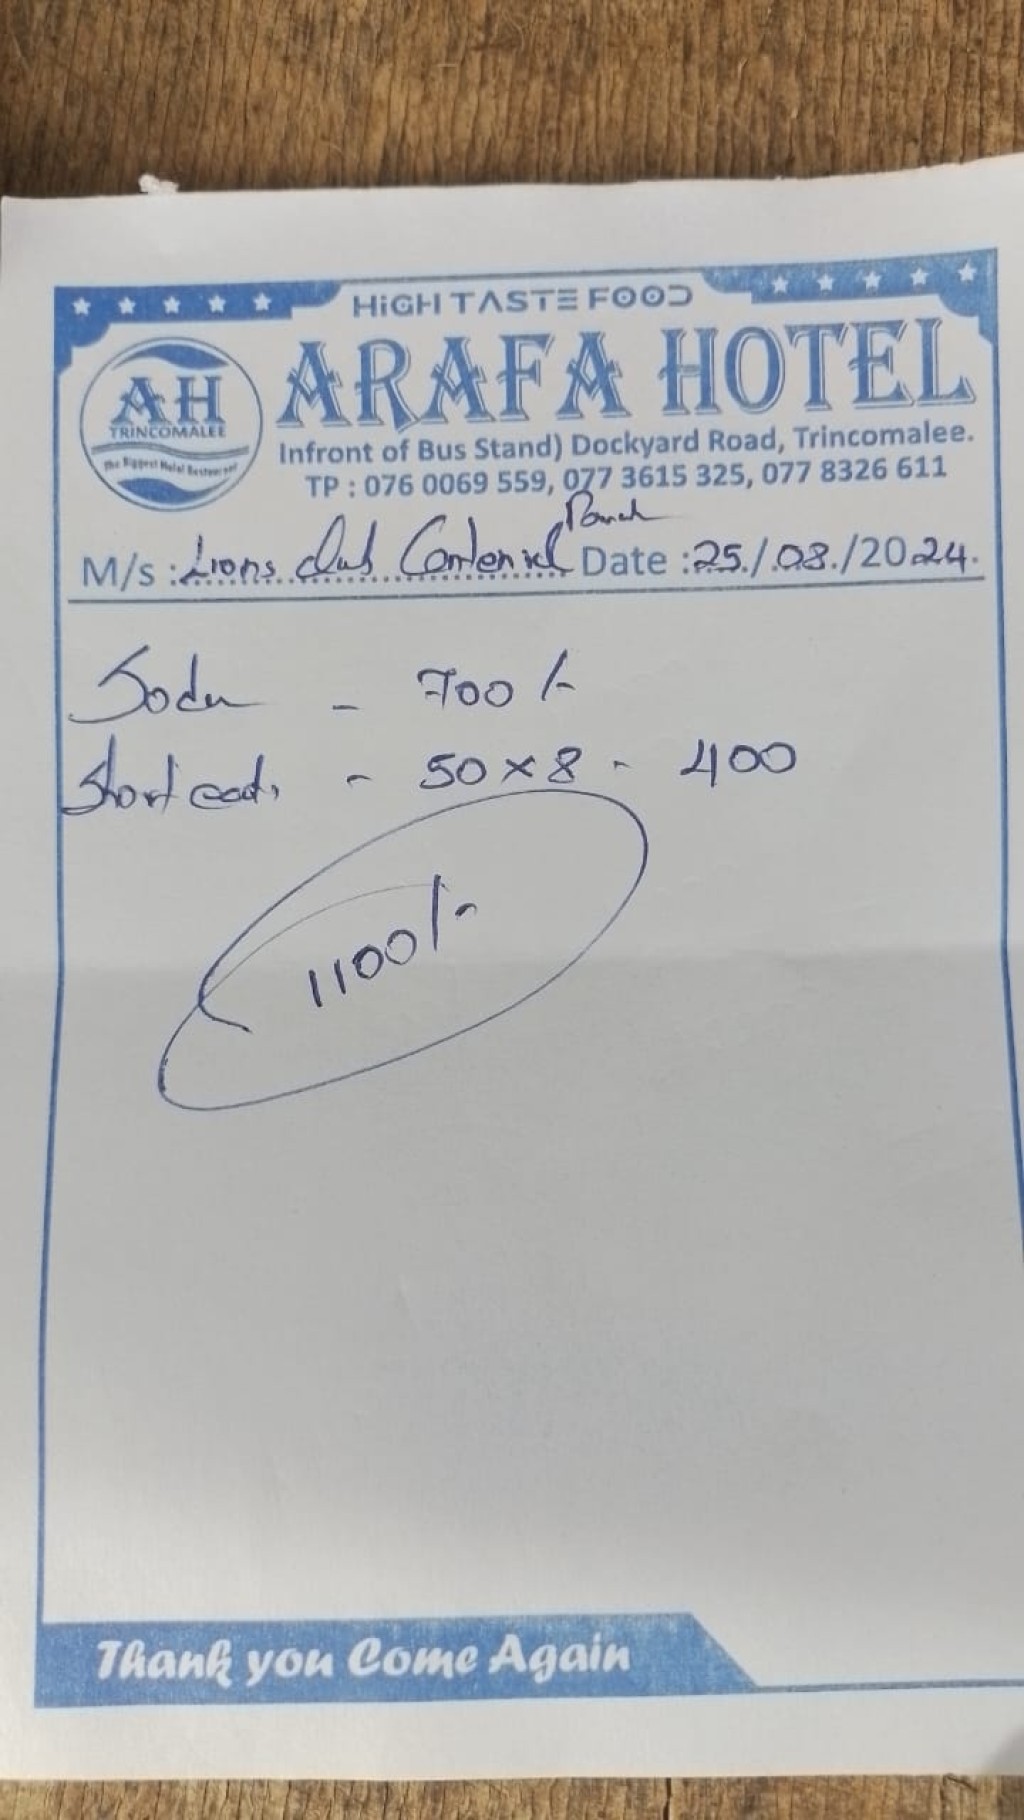 HiGH TASTE FOOD
ARAFA HOTEL
AH
TRINCOMALEE
The Biggest Halal Restaurant
Infront of Bus Stand) Dockyard Road, Trincomalee.
TP : 076 0069 559, 077 3615 325, 077 8326 611
M/s : Lions club Date : 25./.08./2024.
Soda - 700/-
Short eats - 50 x 8 - 400
1100/-
Thank you Come Again